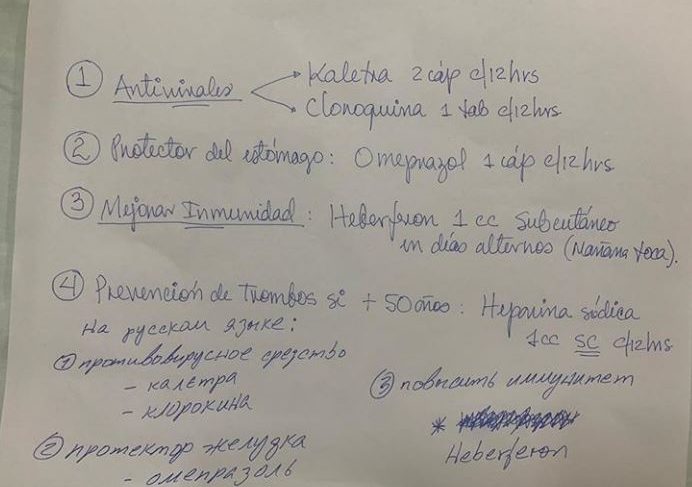 ① Antivirales → Kaletra 2 cáp c/12hrs
→ Cloroquina 1 tab c/12hrs
② Protector del estómago: Omeprazol 1 cáp c/12hrs
③ Mejorar Inmunidad: Heberferon 1 cc subcutáneo
en días alternos (Mañana toca).
④ Prevención de Trombos si + 50 años: Heparina sódica
1cc SC c/12hrs
На русском языке:
① противовирусное средство
- калетра
- клорокина
② протектор желудка
- омепразоль
③ повысить иммунитет
*
Heberferon